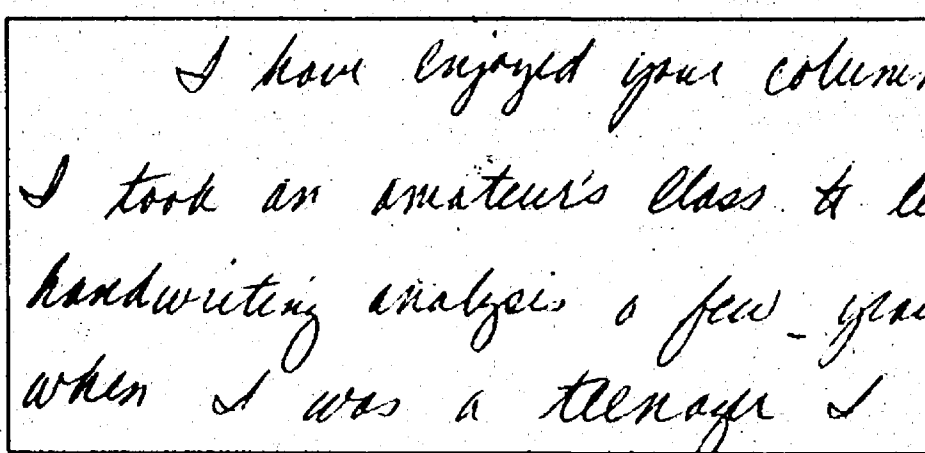 I have enjoyed your column
I took an amateur's class to le
handwriting analysis a few years
when I was a teenager I